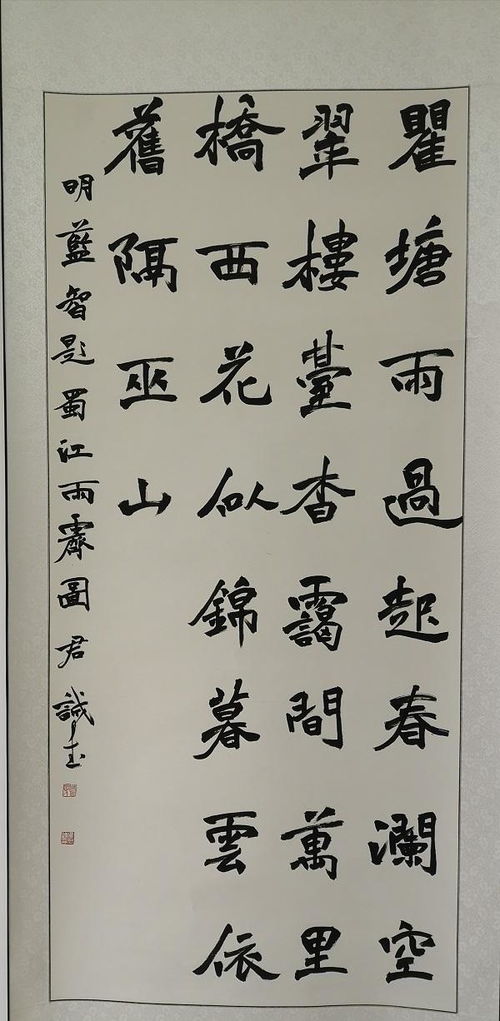 瞿塘雨過起春瀾空
翠樓臺杳靄間萬里
橋西花似錦暮雲依
舊隔巫山
明藍智題蜀江雨霽圖君誠書